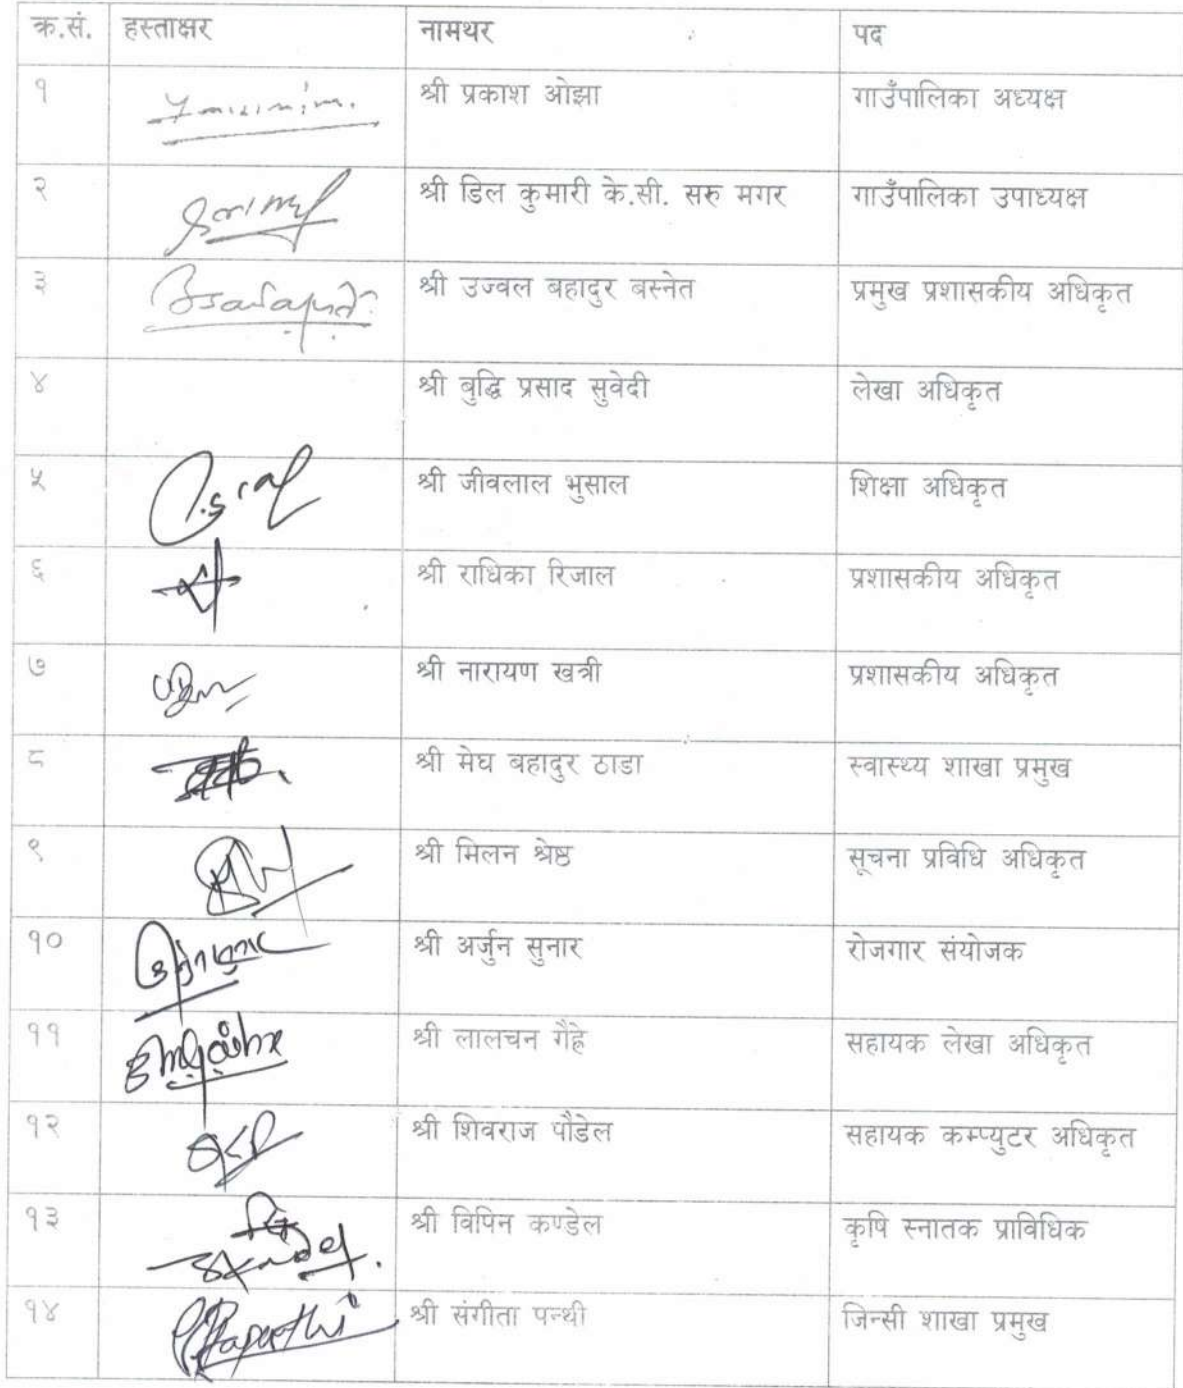 क्र.सं. हस्ताक्षर नामथर पद
१ श्री प्रकाश ओझा गाउँपालिका अध्यक्ष
२ श्री डिल कुमारी के.सी. सरु मगर गाउँपालिका उपाध्यक्ष
३ श्री उज्वल बहादुर बस्नेत प्रमुख प्रशासकीय अधिकृत
४ श्री बुद्धि प्रसाद सुवेदी लेखा अधिकृत
५ श्री जीवलाल भुसाल शिक्षा अधिकृत
६ श्री राधिका रिजाल प्रशासकीय अधिकृत
७ श्री नारायण खत्री प्रशासकीय अधिकृत
८ श्री मेघ बहादुर ठाडा स्वास्थ्य शाखा प्रमुख
९ श्री मिलन श्रेष्ठ सूचना प्रविधि अधिकृत
१० श्री अर्जुन सुनार रोजगार संयोजक
११ श्री लालचन गैह्रे सहायक लेखा अधिकृत
१२ श्री शिवराज पौडेल सहायक कम्प्युटर अधिकृत
१३ श्री विपिन कण्डेल कृषि स्नातक प्राविधिक
१४ श्री संगीता पन्थी जिन्सी शाखा प्रमुख